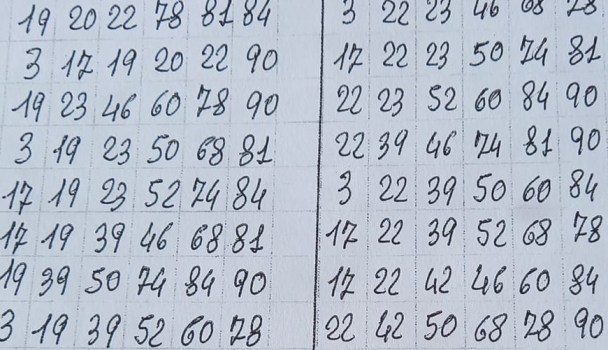 19 20 22 78 81 84
3 17 19 20 22 90
19 23 46 60 78 90
3 19 23 50 68 81
17 19 23 52 74 84
17 19 39 46 68 81
19 39 50 74 84 90
3 19 39 52 60 78
3 22 23 46 68 78
17 22 23 50 74 81
22 23 52 60 84 90
22 39 46 74 81 90
3 22 39 50 60 84
17 22 39 52 68 78
17 22 42 46 60 84
22 42 50 68 78 90